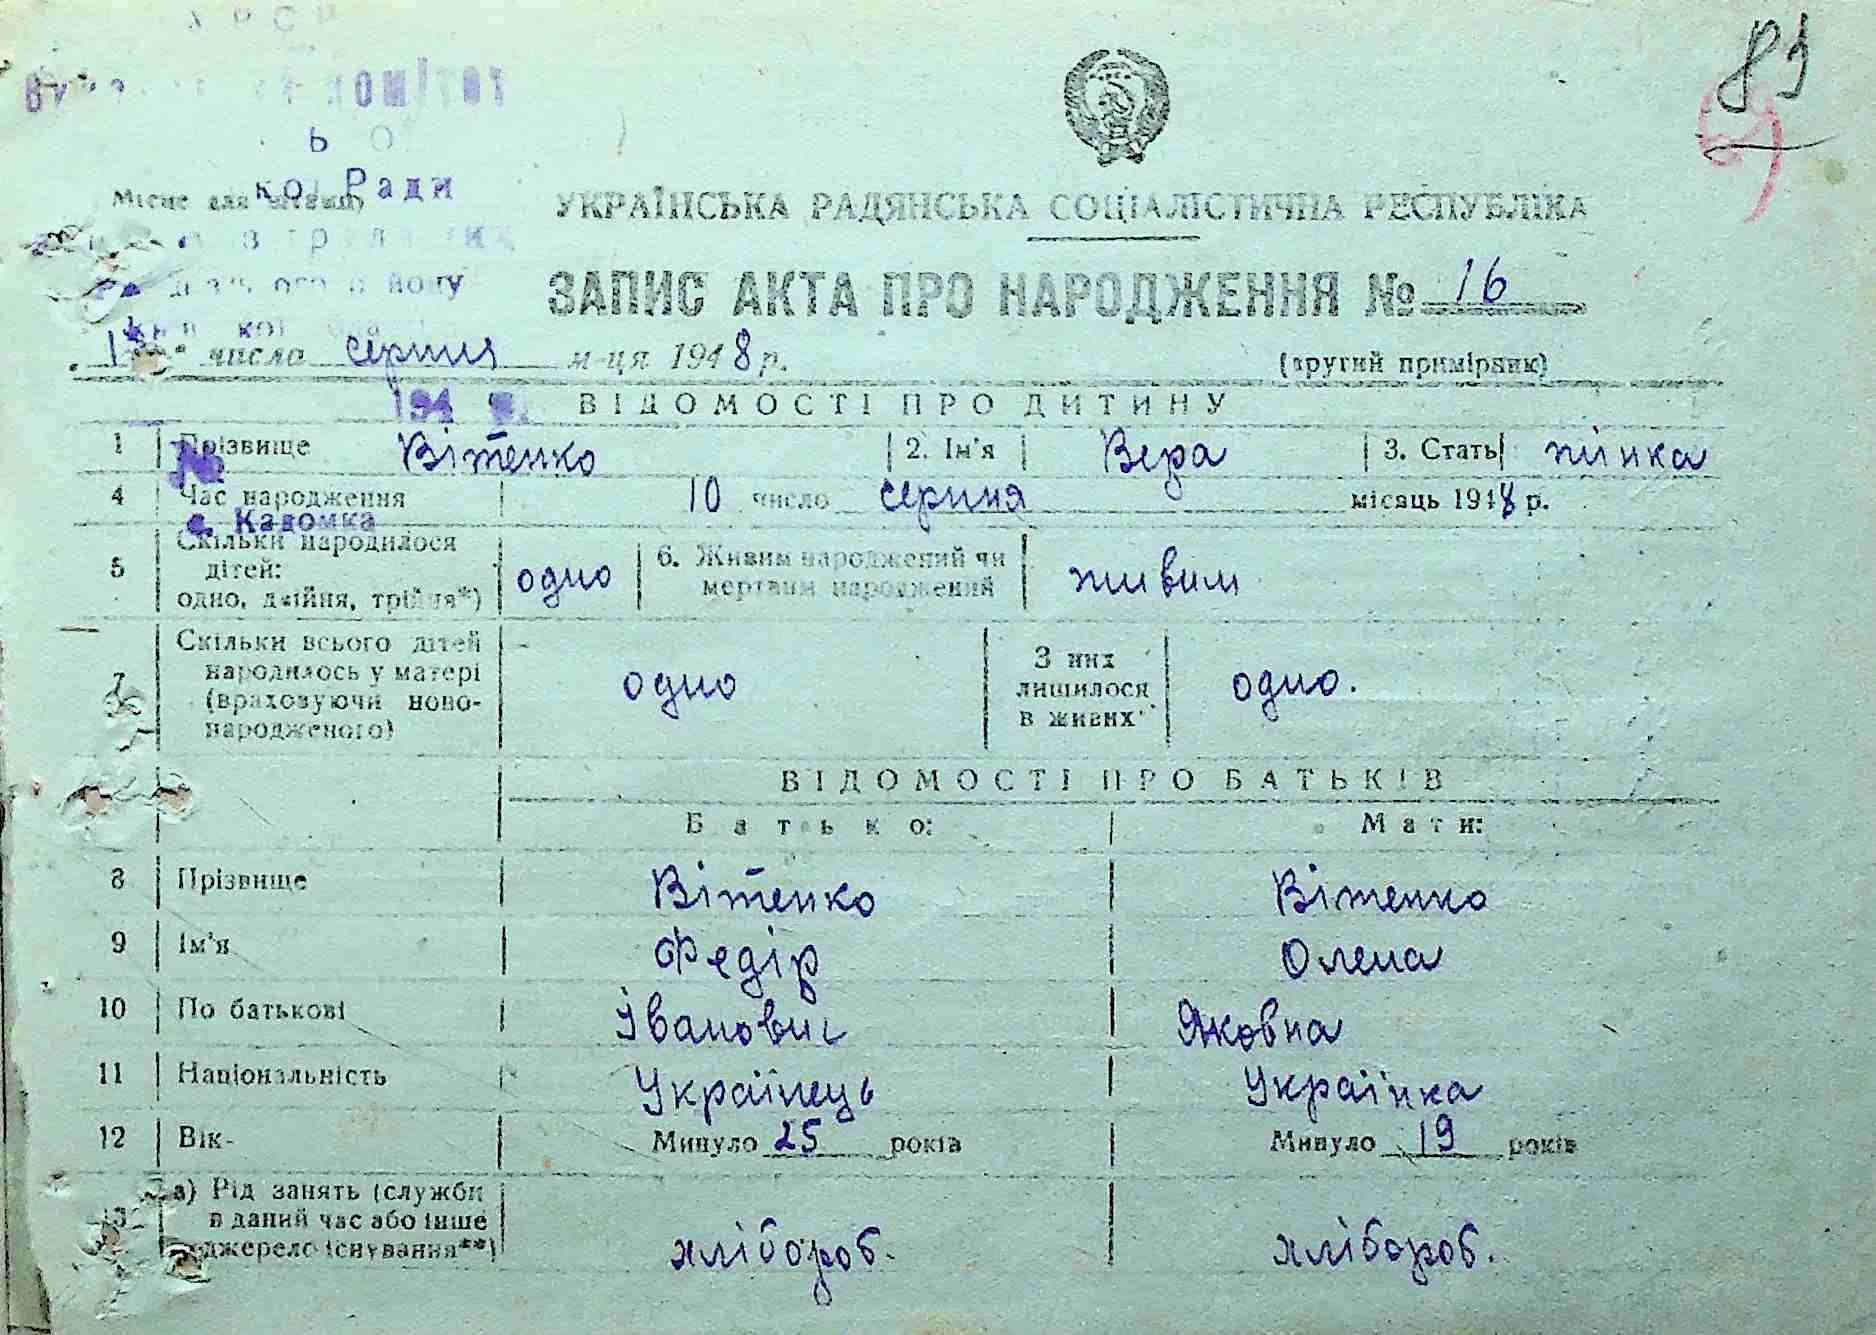 83
кої Ради
Місце для штампу
УКРАЇНСЬКА РАДЯНСЬКА СОЦІАЛІСТИЧНА РЕСПУБЛІКА
ЗАПИС АКТА ПРО НАРОДЖЕННЯ № 16
числа серпня м-ця 1948 р.
(другий примірник)
194
ВІДОМОСТІ ПРО ДИТИНУ
1 Прізвище Вітенко 2. Ім'я Вера 3. Стать жінка
№
4 Час народження 10 число серпня місяць 1948 р.
с. Кадомка
5 Скільки народилося дітей: одно, двійня, трійня*) одно 6. Живим народжений чи мертвим народжений живим
7 Скільки всього дітей народилось у матері (враховуючи новонародженого) одно З них лишилося в живих одно.
ВІДОМОСТІ ПРО БАТЬКІВ
Батько: Мати:
8 Прізвище Вітенко Вітенко
9 Ім'я Федір Олена
10 По батькові Іванович Яковна
11 Національність Українець Українка
12 Вік- Минуло 25 років Минуло 19 років
13 а) Рід занять (служби в даний час або інше джерело існування**) хлібороб. хлібороб.